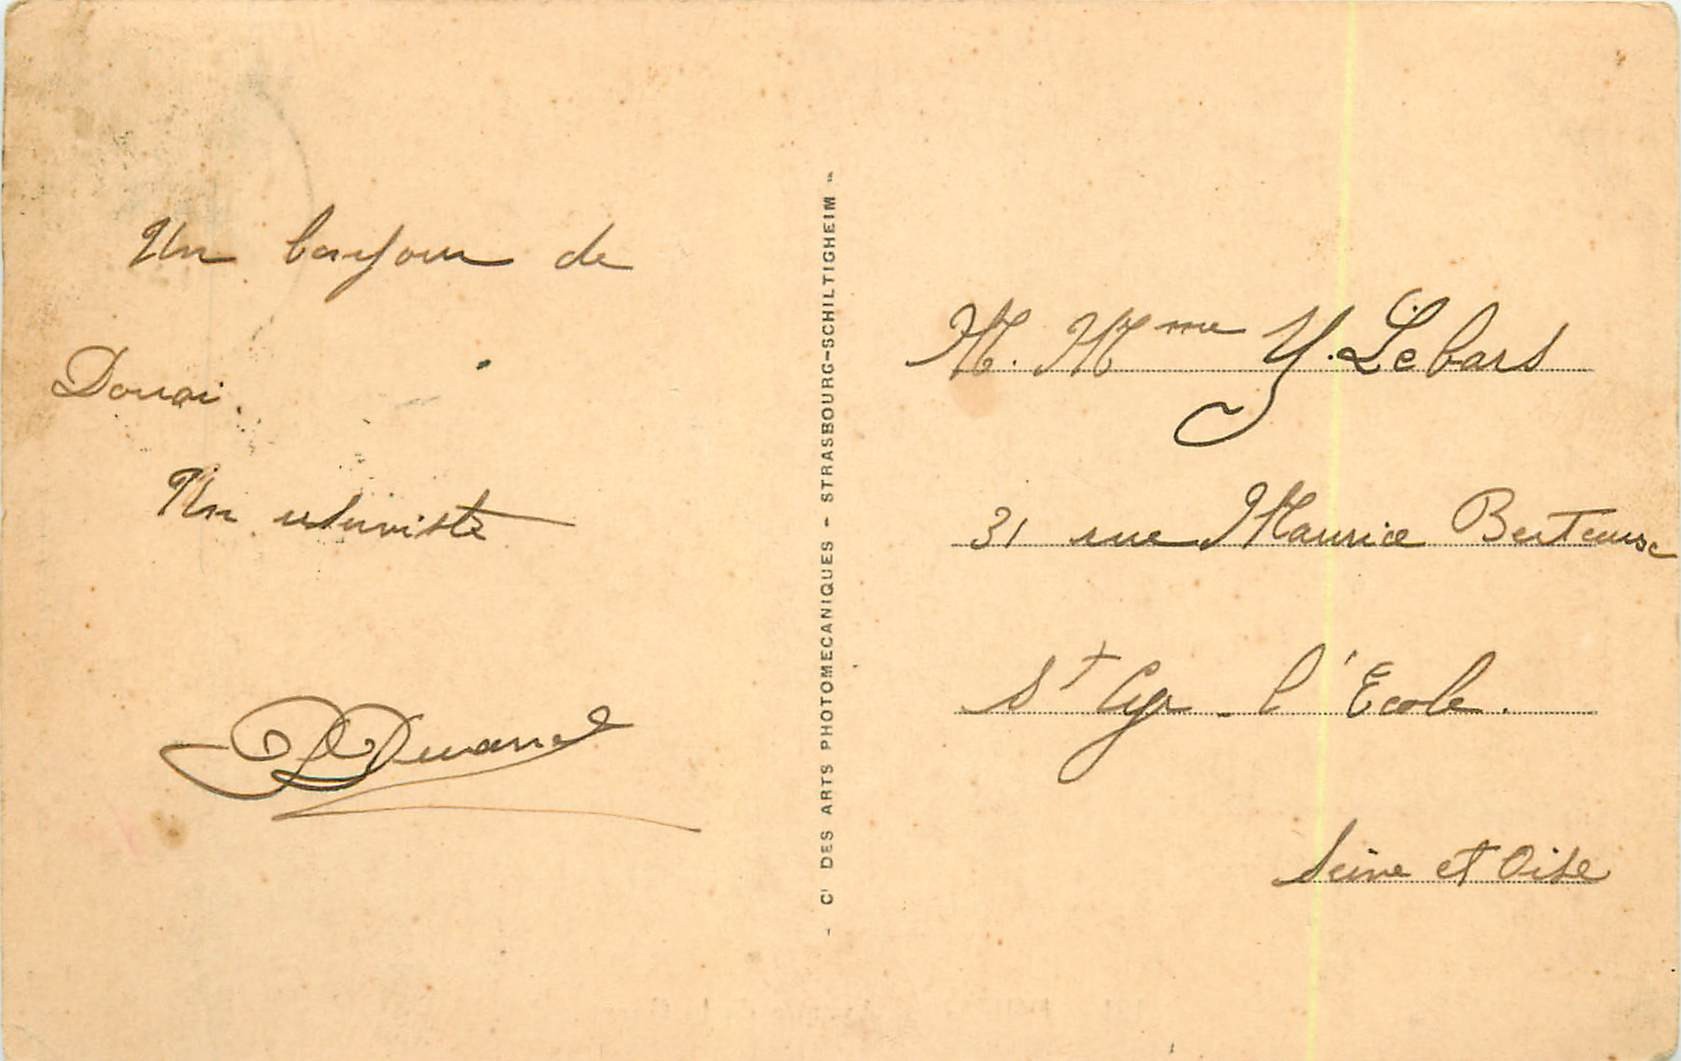 Un bonjour de
Douai.
Un
- Cie DES ARTS PHOTOMECANIQUES - STRASBOURG-SCHILTIGHEIM -
M. Mme Y. Lebars
31 rue Maurice Berteaux
St Cyr - l'Ecole.
Seine et Oise